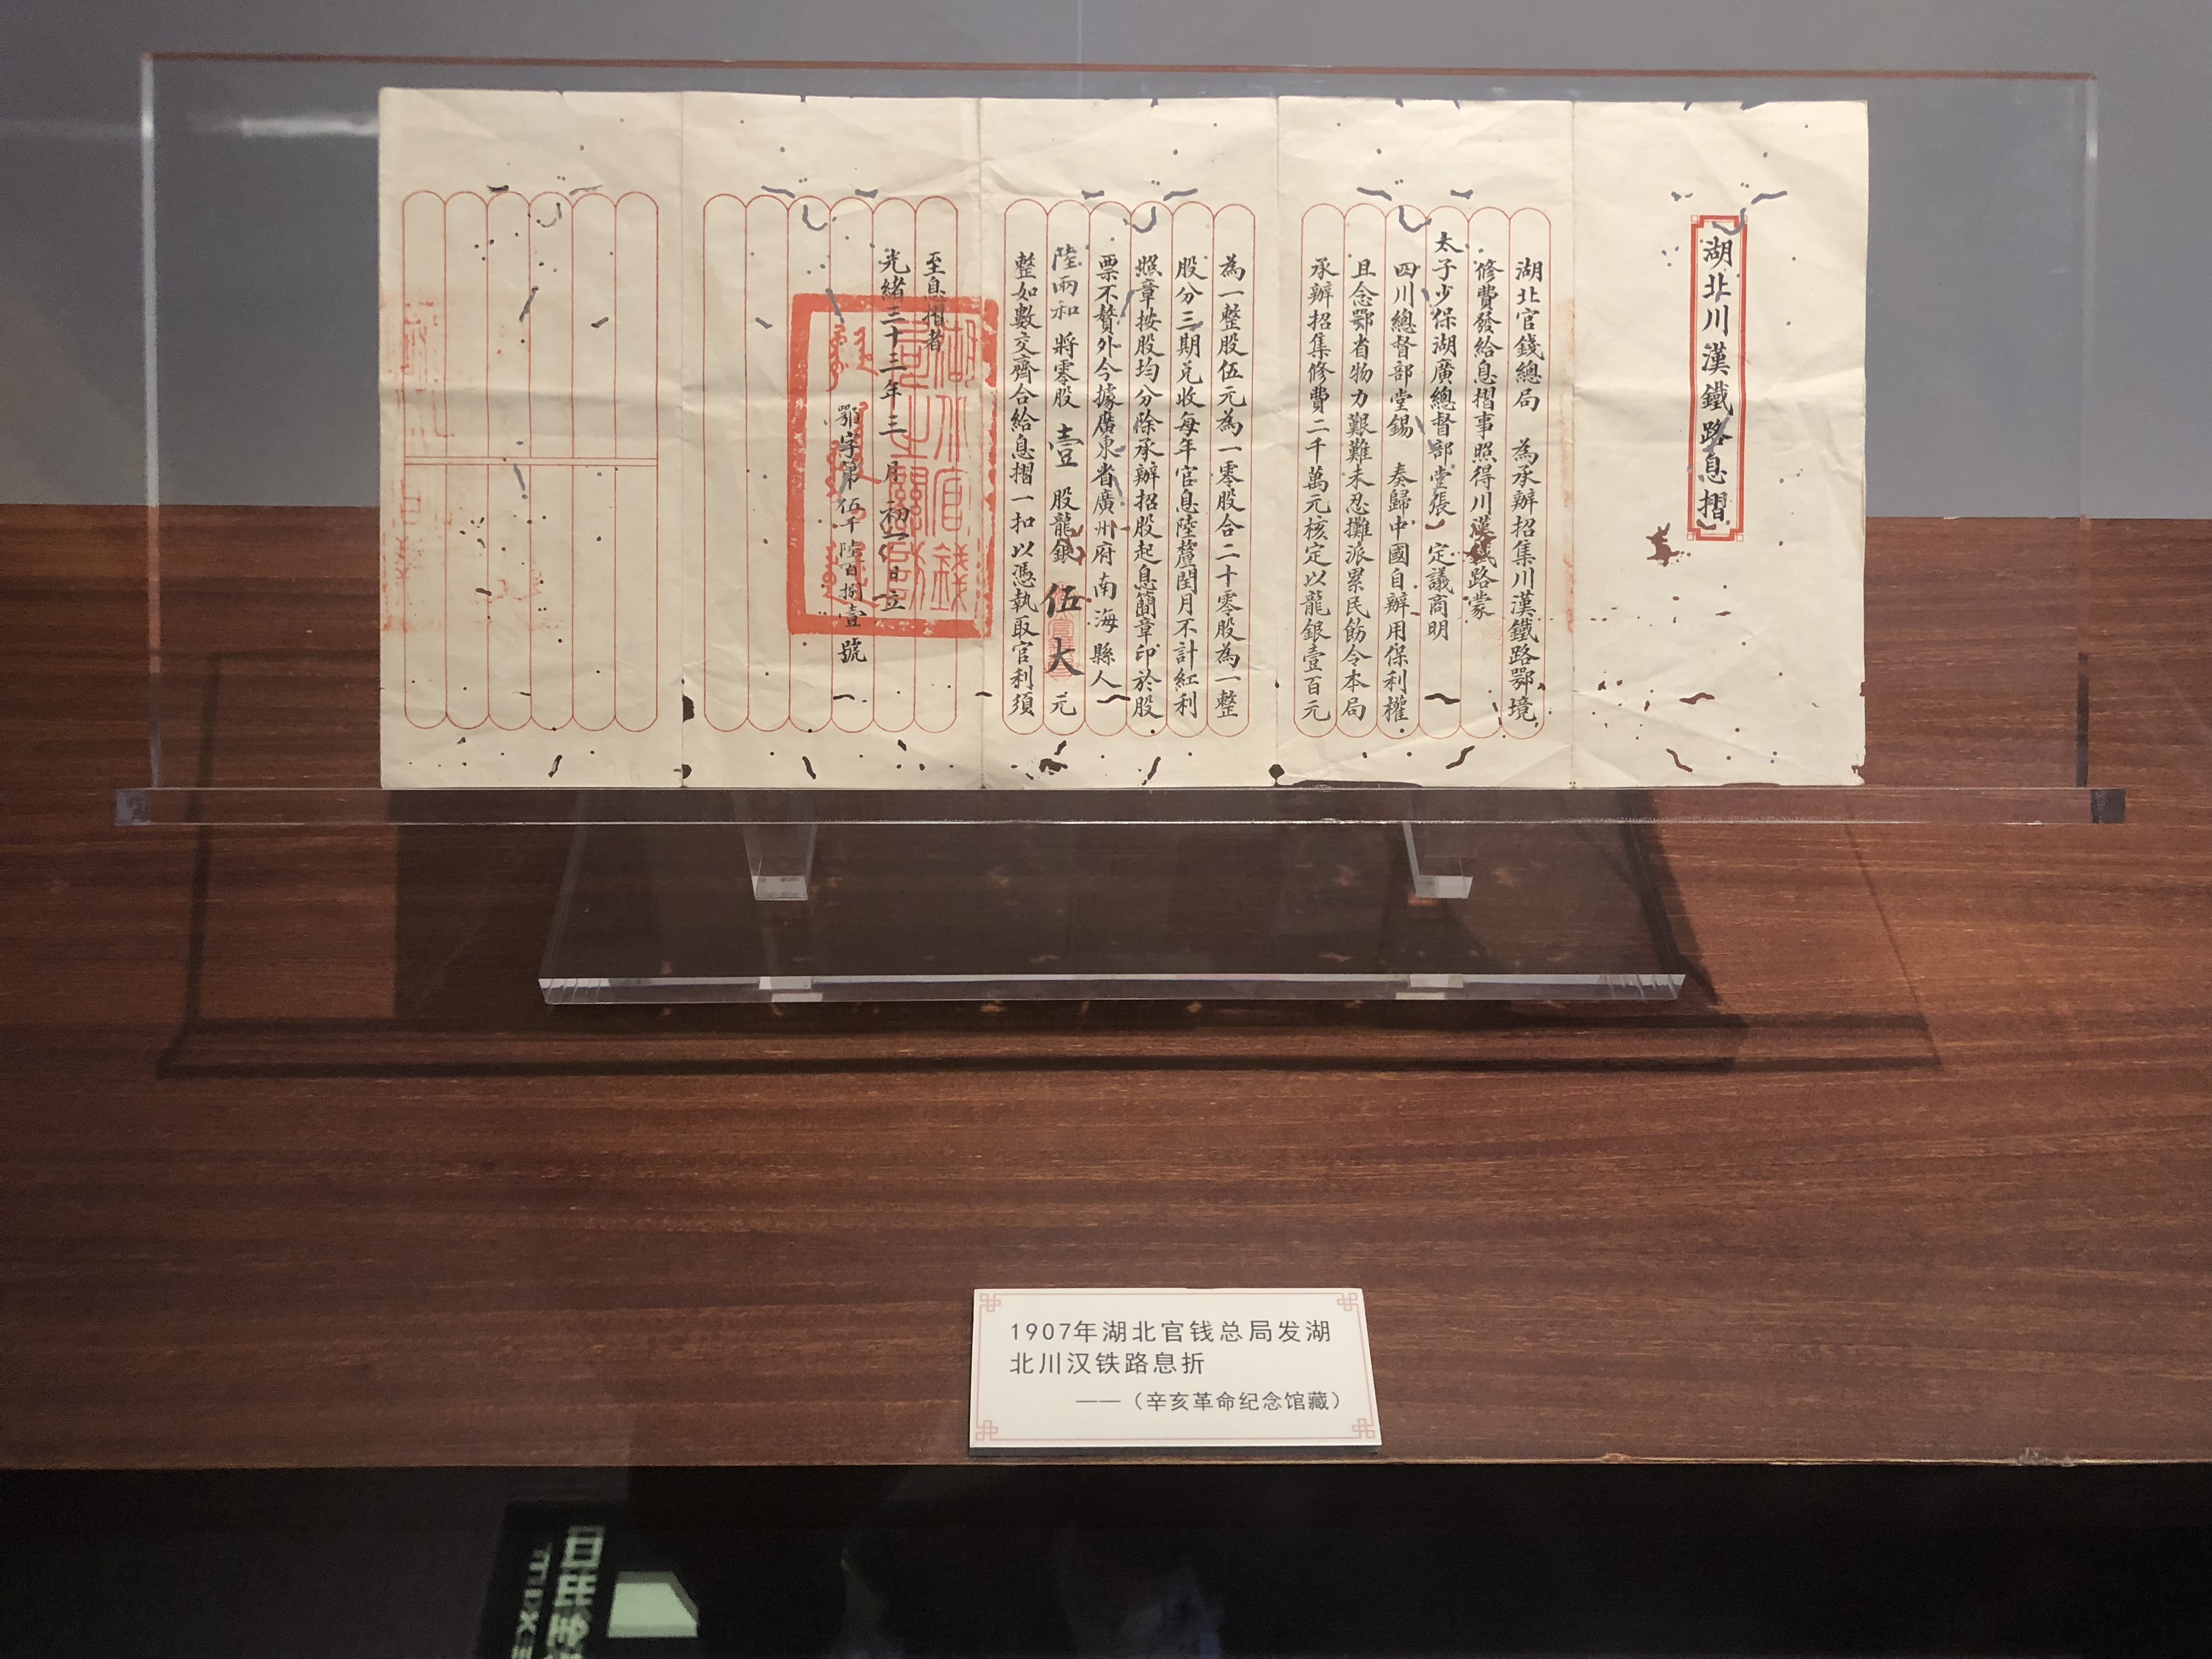 湖北川漢鐵路息摺
湖北官錢總局　為承辦招集川漢鐵路鄂境
修費發給息摺事照得川漢鐵路蒙
太子少保湖廣總督部堂張　定議商明
四川總督部堂錫　奏歸中國自辦用保利權
且念鄂省物力艱難未忍攤派累民飭令本局
承辦招集修費二千萬元核定以龍銀壹百元
為一整股伍元為一零股合二十零股為一整
股分三期兌收每年官息陸釐閏月不計紅利
照章按股均分除承辦招股起息簡章印於股
票不贅外今據廣東省廣州府南海縣人
陸兩和 將零股 壹 股龍銀 伍 大 元
整如數交齊合給息摺一扣以憑執取官利須
至息摺者
光緒三十三年三月初一日立
鄂字第伍千陸百捌壹號
1907年湖北官钱总局发湖
北川汉铁路息折
——（辛亥革命纪念馆藏）